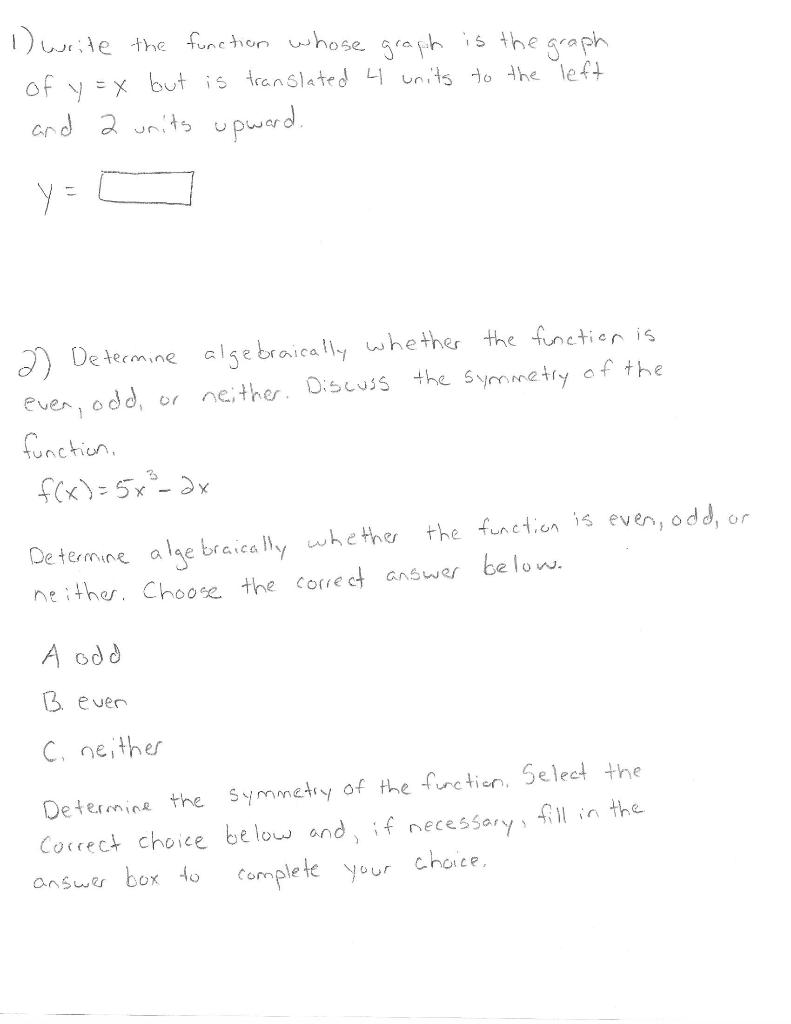 1) write the function whose graph is the graph
of y = x but is translated 4 units to the left
and 2 units upward.
y =
2) Determine algebraically whether the function is
even, odd, or neither. Discuss the symmetry of the
function.
f(x) = 5x³ - 2x
Determine algebraically whether the function is even, odd, or
neither. Choose the correct answer below.
A odd
B. even
C. neither
Determine the symmetry of the function. Select the
correct choice below and, if necessary, fill in the
answer box to complete your choice.